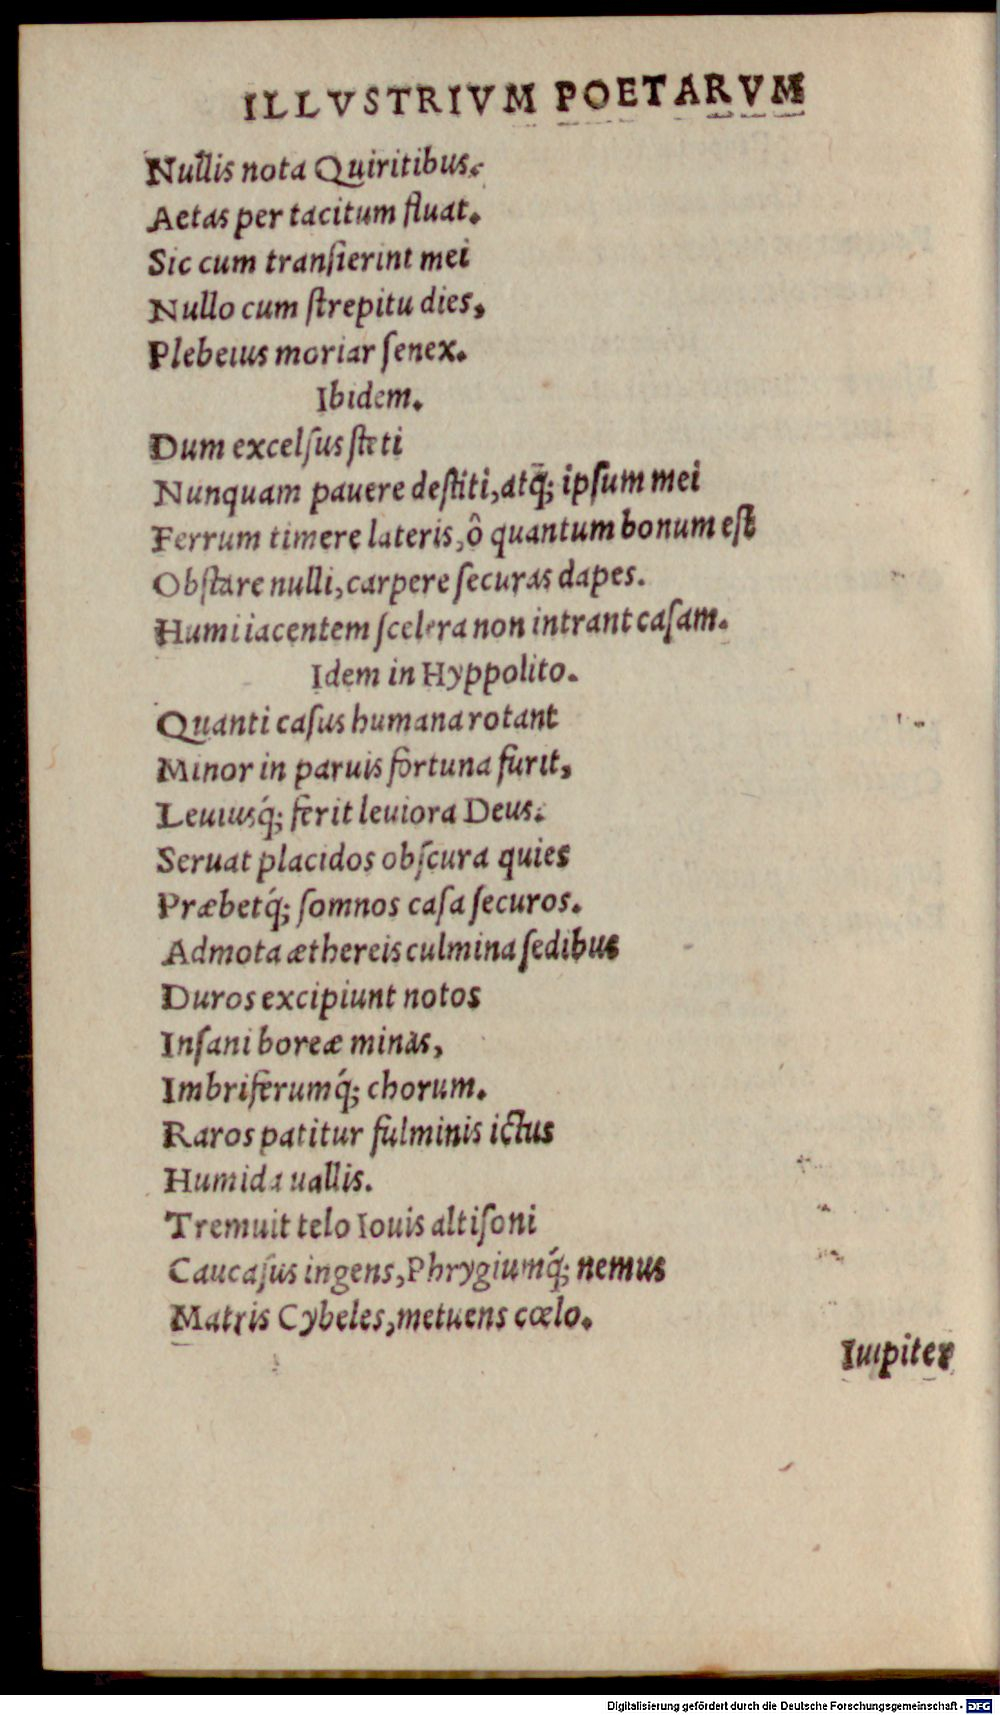 ILLVSTRIVM POETARVM
Nullis nota Quiritibus.
Aetas per tacitum fluat.
Sic cum tranſierint mei
Nullo cum ſtrepitu dies,
Plebeius moriar ſenex.
Ibidem.
Dum excelſus ſteti
Nunquam pauere deſtiti, atq̃; ipſum mei
Ferrum timere lateris, ô quantum bonum eſt
Obſtare nulli, carpere ſecuras dapes.
Humi iacentem ſcelera non intrant caſam.
Idem in Hyppolito.
Quanti caſus humana rotant
Minor in paruis fortuna furit,
Leuiusq́; ferit leuiora Deus.
Seruat placidos obſcura quies
Præbetq́; ſomnos caſa ſecuros.
Admota æthereis culmina ſedibus
Duros excipiunt notos
Inſani boreæ minas,
Imbriferumq́; chorum.
Raros patitur fulminis ictus
Humida uallis.
Tremuit telo Iouis altiſoni
Caucaſus ingens, Phrygiumq́; nemus
Matris Cybeles, metuens cœlo.
Iuupiter
Digitalisierung gefördert durch die Deutsche Forschungsgemeinschaft - DFG